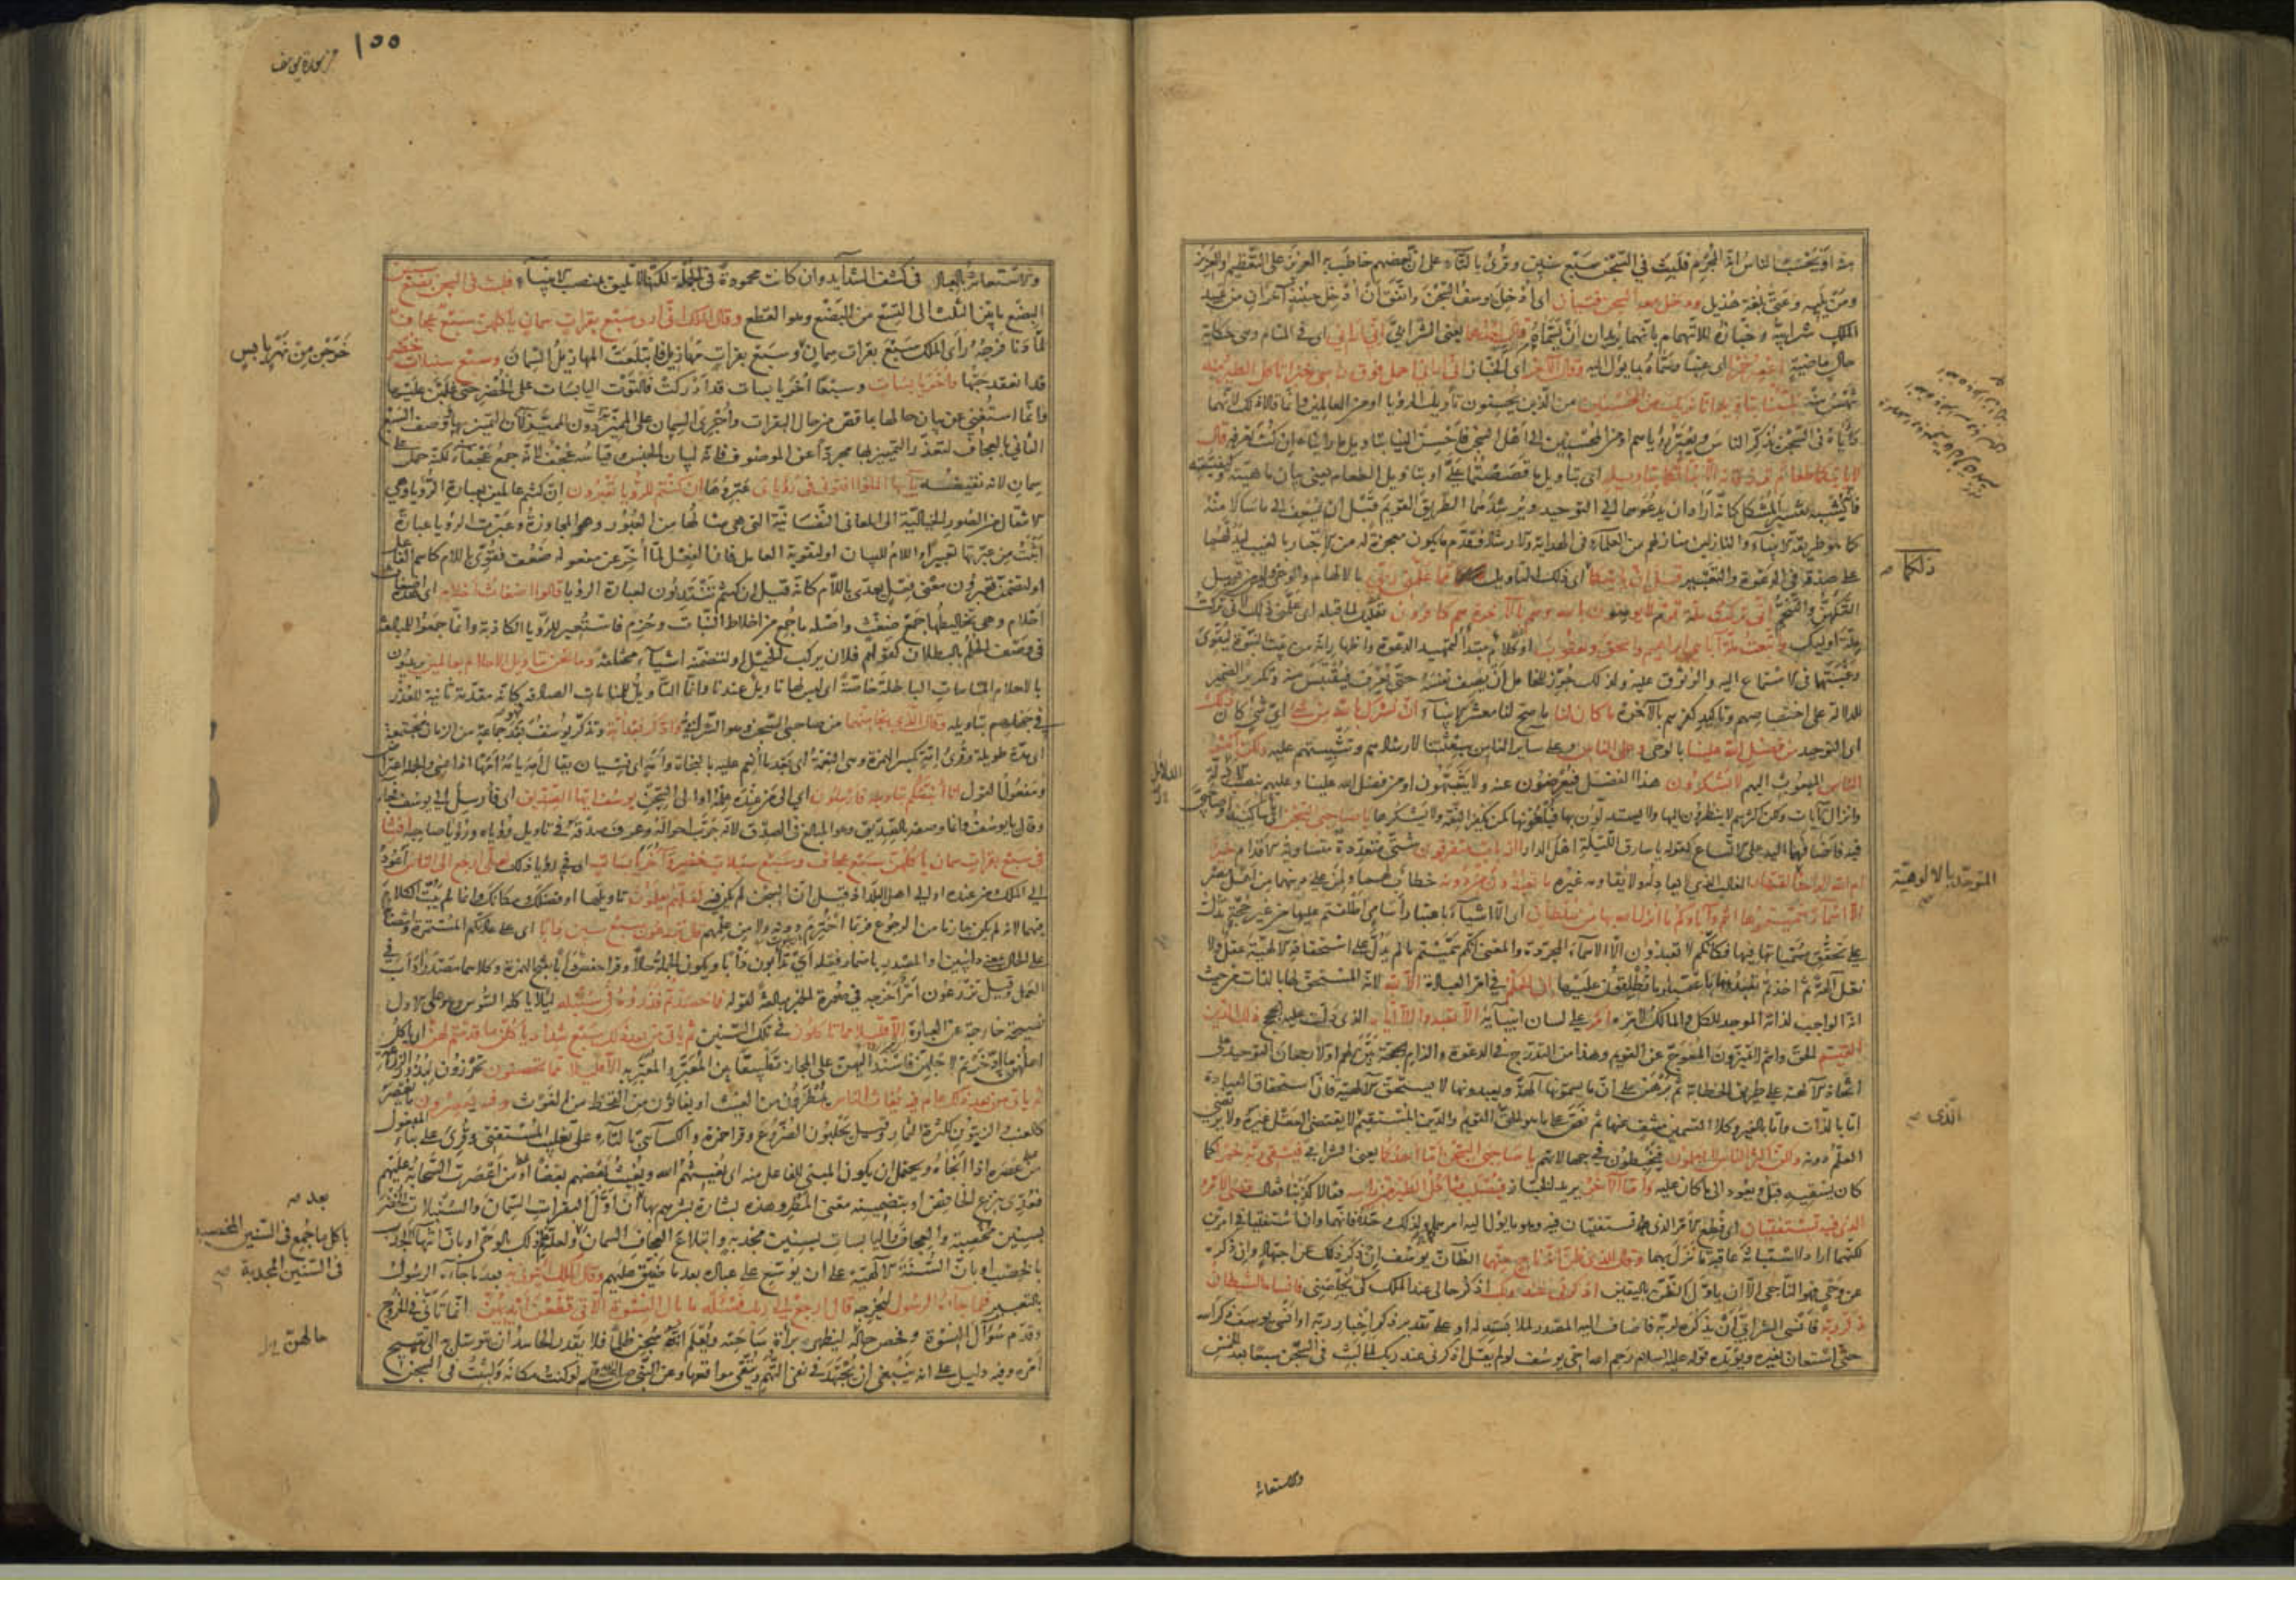 منه او يحسب الناس انه المجرم فلبث في السجن سبع سنين وقرئ بالتاء على ان بعضهم خاطب به العزيز على التعظيم او العزيز
ومن يليه وعتى بلغة هذيل ودخل معه السجن فتيان اى ادخل يوسف السجن واتفق ان ادخل حينئذ آخران من عبيد
الملك شرابيه وخبازه للاتهام بانهما يريدان ان يسماه قال احدهما يعنى الشرابي انى ارانى اى في المنام وهى حكاية
حال ماضية اعصر خمرا اى عنبا وسماه بما يؤل اليه وقال الآخر اى الخباز انى ارانى احمل فوق راسى خبزا تاكل الطير منه
تنهش منه نبئنا بتاويله انا نريك من المحسنين من الذين يحسنون تاويل الرؤيا او من العالمين وانما قالا ذلك لانهما
رأياه فى السجن يذكر الناس ويعبر رؤياهم او من المحسنين الى اهل السجن فاحسن الينا بتاويل ما راينا ان كنت تعرفه قال
لا ياتيكما طعام ترزقانه الا نباتكما بتاويله اى بتاويل ما قصصتما على او بتاويل الطعام يعنى بيان ماهيته وكيفيته
فانه يشبه تفسير المشكل كانه اراد ان يدعوهما الى التوحيد ويرشدهما الطريق القويم قبل ان يسعف الى ما سالا منه
كما هو طريقة الانبياء والنازلين منازلهم من العلماء فى الهداية والارشاد فقدم ما يكون معجزة له من الاخبار بالغيب ليدلهما
على صدقه فى الدعوة والتعبير قبل ان ياتيكما اى ذلك التاويل مما علمنى ربى بالالهام والوحى وليس من قبيل
التكهن والتنجم انى تركت ملة قوم لا يؤمنون بالله وهم بالآخرة هم كافرون تعليل لما قبله اى علمنى ذلك لانى تركت
ملة اولئك واتبعت ملة آبائى ابراهيم واسحق ويعقوب او كلام مبتدأ لتمهيد الدعوة واظهار انه من بيت النبوة لتقوى
رغبتهما فى الاستماع اليه والوثوق عليه ولذلك جوز للخامل ان يصف نفسه حتى يعرف فيقتبس منه وتكرير الضمير
للدلالة على اختصاصهم وتاكيد كفرهم بالآخرة ما كان لنا ما صح لنا معشر الانبياء ان نشرك بالله من شئ اى شئ كان ذلك
اى التوحيد من فضل الله علينا بالوحى وعلى الناس وعلى سائر الناس ببعثتنا لارشادهم وتثبيتهم عليه ولكن اكثر
الناس المبعوث اليهم لا يشكرون هذا الفضل فيعرضون عنه ولا يتنبهون او من فضل الله علينا وعليهم بنصب الادلة
وانزال الآيات ولكن اكثرهم لا ينظرون اليها ولا يستدلون بها فيلغونها كمن يكفر النعمة ولا يشكرها يا صاحبى السجن اى يا ساكنيه او يا صاحبى
فيه فاضافهما اليه على الاتساع كقوله يا سارق الليلة اهل الدار أارباب متفرقون شتى متعددة متساوية الاقدام خير
ام الله الواحد القهار الغالب الذى لا يعادله ولا يقاومه غيره ما تعبدون من دونه خطاب لهما ولمن على دينهما من اهل مصر
الا اسماء سميتموها انتم وآباؤكم ما انزل الله بها من سلطان اى الا اشياء باعتبار اسامى اطلقتم عليها من غير حجة تدل
على تحقق مسمياتها فيها فكانكم لا تعبدون الا الاسماء المجردة والمعنى انكم سميتم بما لم يدل على استحقاقه الالهية عقل ولا
نقل آلهة ثم اخذتم تعبدونها باعتبار ما تطلقون عليها ان الحكم فى امر العبادة الا لله لانه المستحق لها بالذات من حيث
انه الواجب لذاته الموجد للكل والمالك لامره امر على لسان انبيائه الا تعبدوا الا اياه الذى دلت عليه الحجج ذلك الدين
القيم الحق وانتم لا تميزون المعوج عن القويم وهذا من التدرج فى الدعوة والزام الحجة بين لهم اولا رجحان التوحيد على
اتخاذ الآلهة على طريق الخطابة ثم برهن على ان ما يسمونها آلهة ويعبدونها لا يستحق الالهية فان استحقاق العبادة
اما بالذات واما بالغير وكلا القسمين منتف عنها ثم نص على ما هو الحق القويم والدين المستقيم الذى لا يقتضى العقل غيره ولا يرتضى
العلم دونه ولكن اكثر الناس لا يعلمون فيخبطون فى جهالاتهم يا صاحبى السجن اما احدكما يعنى الشرابى فيسقى ربه خمرا كما
كان يسقيه قبل ويعود الى ما كان عليه واما الآخر يريد الخباز فيصلب فتاكل الطير من راسه فقالا كذبنا فقال قضى الامر
الذى فيه تستفتيان اى قطع الامر الذى تستفتيان فيه وهو ما يؤل اليه امركما ولذلك وحده فانهما وان استفتيا فى امرين
لكنهما ارادا استبانة عاقبة ما نزل بهما وقال للذى ظن انه ناج منهما الظان يوسف ان ذكر ذلك عن اجتهاد وان ذكره
عن وحى فهو الناجى الا ان ياول الظن باليقين اذكرنى عند ربك اذكر حالى عند الملك كى يخلصنى فانساه الشيطان
ذكر ربه فانسى الشرابى ان يذكره لربه فاضاف اليه المصدر لملابسته له او على تقدير ذكر اخبار ربه او انسى يوسف ذكر الله
حتى استعان بغيره ويؤيده قوله عليه السلام رحم الله اخى يوسف لو لم يقل اذكرنى عند ربك لما لبث فى السجن سبعا بعد الخمس
ذلكما صح
الدلائل
المتوحد بالالوهية
الذى صح
والاستعانة
١٥٥
من سورة يوسف
والاستعانة بالعباد فى كشف الشدايد وان كانت محمودة فى الجملة لكنها لا تليق بمنصب الانبياء فلبث فى السجن بضع سنين
البضع ما بين الثلث الى التسع من البضع وهو القطع وقال الملك انى ارى سبع بقرات سمان ياكلهن سبع عجاف
لما دنا فرجه رأى الملك سبع بقرات سمان وسبع بقرات مهازيل فابتلعت المهازيل السمان وسبع سنبلات خضر
قد انعقد حبها واخر يابسات وسبعا اخر يابسات قد ادركت فالتوت اليابسات على الخضر حتى غلبن عليها
وانما استغنى عن بيان حالها بما قص من حال البقرات واجرى السمان على المميز دون المميز لان التميز بها ووصف السبع
الثانى بالعجاف لتعذر التمييز بها مجردة عن الموصوف فانه لبيان الجنس وقياسه عجف لانه جمع عجفاء لكنه حمل على
سمان لانه نقيضه يا ايها الملأ افتونى فى رؤياى عبروها ان كنتم للرؤيا تعبرون ان كنتم عالمين بعبارة الرؤيا وهى
الانتقال من الصور الخيالية الى المعانى النفسانية التى هى مثالها من العبور وهو المجاوزة وعبرت الرؤيا عبارة
اثبت من عبرتها تعبيرا واللام للبيان او لتقوية العامل فان الفعل لما اخر عن مفعوله ضعف فقوى باللام كاسم الفاعل
او لتضمن تعبرون معنى فعل يعدى باللام كانه قيل ان كنتم تنتدبون لعبارة الرؤيا قالوا اضغاث احلام اى هذه اضغاث
احلام وهى تخاليطها جمع ضغث واصله ما جمع من اخلاط النبات وحزم فاستعير للرؤيا الكاذبة وانما جمعوا للمبالغة
فى وصف الحلم بالبطلان كقولهم فلان يركب الخيل او لتضمنه اشياء مختلفة وما نحن بتاويل الاحلام بعالمين يريدون
بالاحلام المنامات الباطلة خاصة اى ليس لها تاويل عندنا وانما التاويل للمنامات الصادقة كانه مقدمة ثانية للعذر
فى جهلهم بتاويله وقال الذى نجا منهما من صاحبى السجن وهو الشرابى وادكر بعد امة وتذكر يوسف بعد جماعة من الزمان مجتمعة
اى مدة طويلة وقرئ امة بكسر الهمزة وهى النعمة اى بعد ما انعم عليه بالنجاة وامه اى نسيان يقال امه يامه امها اذا نسى والجملة اعتراض
ومفعول القول انا انبئكم بتاويله فارسلون اى الى من عنده علمه او الى السجن يوسف ايها الصديق اى فارسل الى يوسف فجاء
وقال يا يوسف وانما وصفه بالصديق وهو المبالغ فى الصدق لانه جرب احواله وعرف صدقه فى تاويل رؤياه ورؤيا صاحبه افتنا
فى سبع بقرات سمان ياكلهن سبع عجاف وسبع سنبلات خضر واخر يابسات اى فى رؤيا ذلك لعلى ارجع الى الناس اعود
الى الملك ومن عنده او الى اهل البلد اذ قيل ان السجن لم يكن فيه لعلهم يعلمون تاويلها او فضلك ومكانك وانما لم يبت الكلام
فيهما لانه لم يكن جازما من الرجوع فربما اخترم دونه ولا من علمهم قال تزرعون سبع سنين دأبا اى على عادتكم المستمرة وانتصابه
على الحال بمعنى دائبين او المصدر باضمار فعله اى تدأبون دأبا ويكون الجملة حالا وقرا حفص دأبا بفتح الهمزة وكلاهما مصدر دأب فى
العمل وقيل تزرعون امر اخرجه فى صورة الخبر مبالغة لقوله فما حصدتم فذروه فى سنبله لئلا ياكله السوس وهو على الاول
نصيحة خارجة عن العبارة الا قليلا مما تاكلون فى تلك السنين ثم ياتى من بعد ذلك سبع شداد ياكلن ما قدمتم لهن اى ياكل
اهلهن ما ادخرتم لاجلهن فاسند اليهن على المجاز تطبيقا بين المعبر والمعبر به الا قليلا مما تحصنون تحرزون لبذور الزراعة
ثم ياتى من بعد ذلك عام فيه يغاث الناس يمطرون من الغيث او يغاثون من القحط من الغوث وفيه يعصرون ما يعصر
كالعنب والزيتون لكثرة الثمار وقيل يحلبون الضروع وقرا حمزة والكسائى بالتاء على تغليب المستفتى وقرئ على بناء المفعول
من عصره اذا انجاه ويحتمل ان يكون المبنى للفاعل منه اى يغيثهم الله ويغيث بعضهم بعضا او من اعصرت السحابة عليهم
فعدى بنزع الخافض او بتضمينه معنى المطر وهذه بشارة بشرهم بها بعد ان اول البقرات السمان والسنبلات الخضر
بسنين مخصبة والعجاف واليابسات بسنين مجدبة وابتلاع العجاف السمان ولعله علم ذلك بالوحى او بان انتهاء الجدب
بالخصب او بان السنة الالهية على ان يوسع على عباده بعد ما ضيق عليهم وقال الملك ائتونى به بعد ما جاءه الرسول
بالتعبير فلما جاءه الرسول ليخرجه قال ارجع الى ربك فسئله ما بال النسوة اللاتى قطعن ايديهن انما تانى فى الخروج
وقدم سؤال النسوة وفحص حاله ليظهر براءة ساحته ويعلم انه سجن ظلما فلا يقدر الحاسد ان يتوسل به الى تقبيح
امره وفيه دليل على انه ينبغى ان يجتهد فى نفى التهم ويتقى مواقعها وعن النبى صلى الله عليه وسلم لو كنت مكانه ولبثت فى السجن
خرجن من نهر يابس
بعد صح
باكل ما جمع فى السنين المخصبة
فى السنين المجدبة صح
حالهن